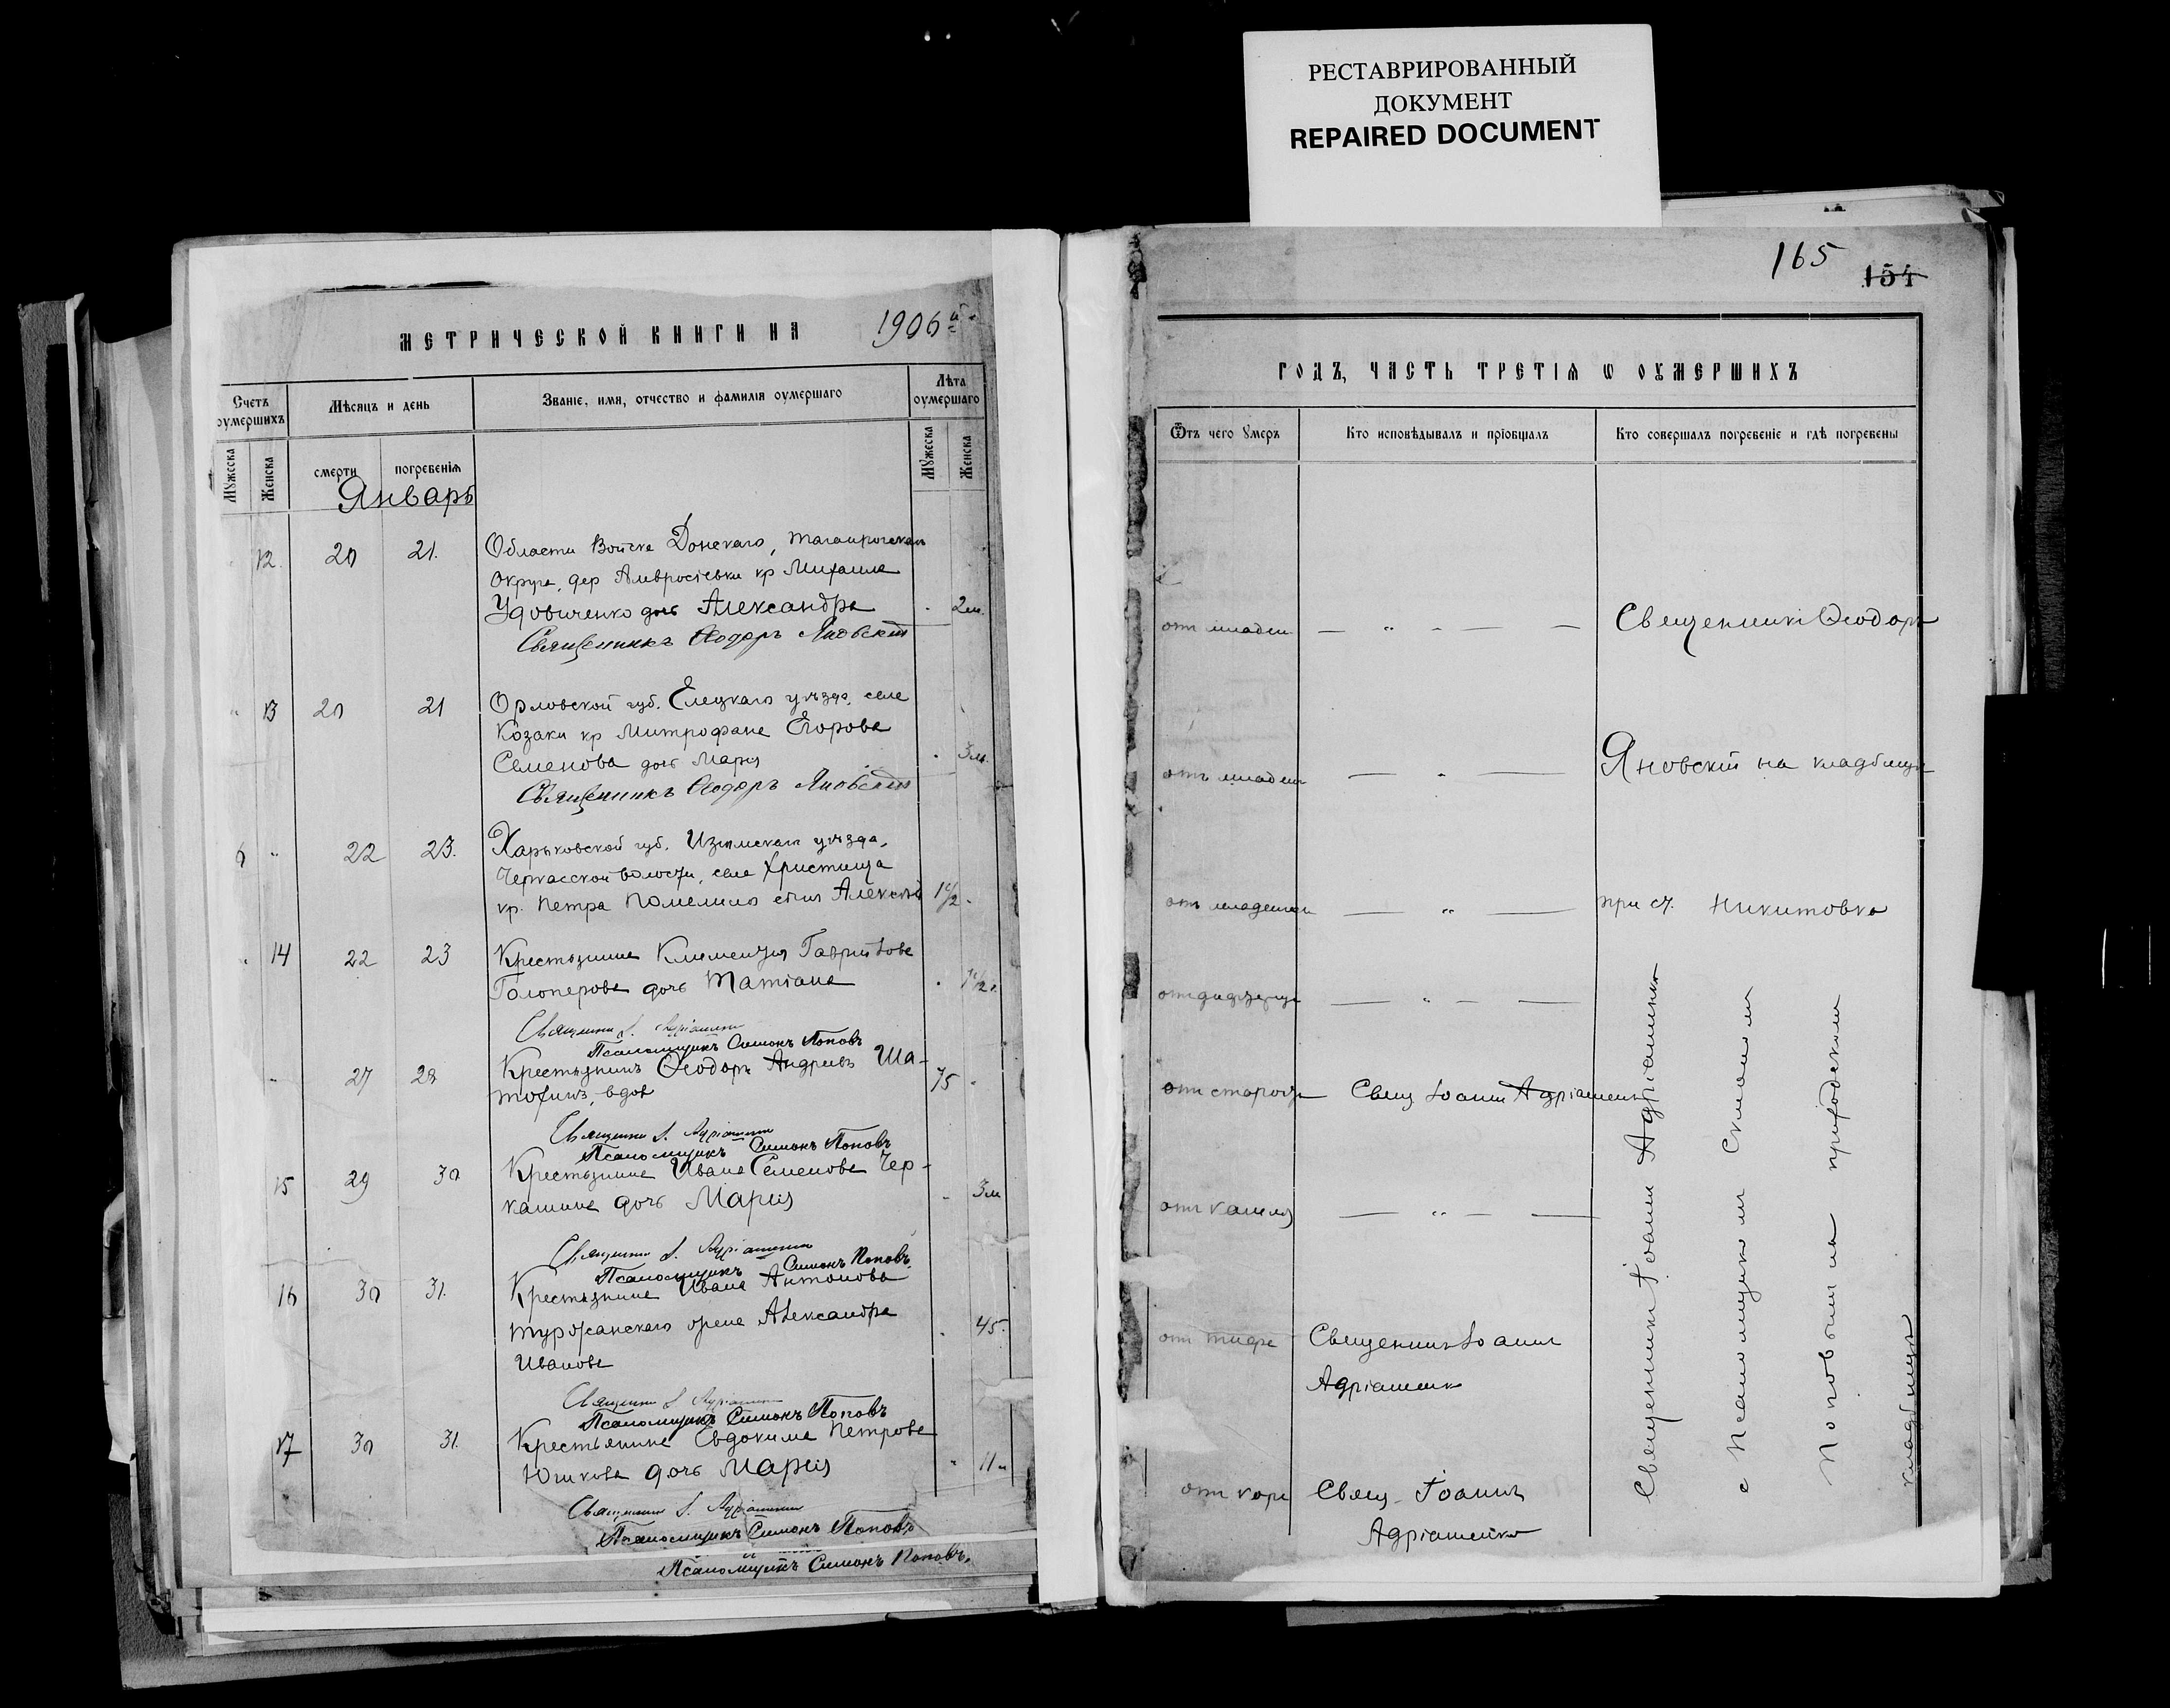 РЕСТАВРИРОВАННЫЙ
ДОКУМЕНТ
REPAIRED DOCUMENT
МЕТРИЧЕСКОЙ КНИГИ НА 1906й
Счетъ оумершихъ
Мѣсяцъ и день
Званіе, имя, отчество и фамилія оумершаго
Лѣта оумершаго
Мужеска
Женска
смерти
погребенія
Мужеска
Женска
Январь
12. 20 21. Области Войска Донскаго, Таганрогскаго
округа, дер Амвросіевки кр Михаила
Удовиченко дочь Александра 2 м.
Священникъ Ѳеодоръ Яновскій
13 20 21 Орловской губ. Елецкаго уѣзда, села
Козаки кр Митрофана Егорова
Семенова дочь Марія 3 м.
Священникъ Ѳеодоръ Яновскій
6 22 23. Харьковской губ. Изюмскаго уѣзда,
Черкасской волости, села Христища
кр. Петра сынъ Алексѣй 1 1/2
14 22 23 Крестьянина Климентія Гаврилова
Голоперова дочь Татіана 1 1/2 г.
Псаломщикъ Симонъ Поповъ
27 28 Крестьянинъ Ѳеодоръ Андреевъ Ша-
вдов 75
Псаломщикъ Симонъ Поповъ
15 29 30 Крестьянина Ивана Семенова Чер-
кашина дочь Марія 3 м
Псаломщикъ Симонъ Поповъ
16 30 31. Крестьянина Ивана Антонова
Туржанскаго жена Александра 45.
Иванова
Псаломщикъ Симонъ Поповъ
17 30 31. Крестьянина Евдокима Петрова
Юшкова дочь Марія 11 м
Псаломщикъ Симонъ Поповъ
Псаломщикъ Симонъ Поповъ.
165
154
ГОДЪ, ЧАСТЬ ТРЕТІЯ Ѡ ОУМЕРШИХЪ
Ѿтъ чего Умеръ
Кто исповѣдывалъ и пріобщалъ
Кто совершалъ погребеніе и гдѣ погребены
от младен Священникъ Ѳеодоръ
отъ младен Яновскій на кладбищѣ
отъ младенч при ст. Никитовка
от старости Свящ Іоаннъ Адріашенко
отъ кашля
от тифа Священникъ Іоаннъ
Адріашенко
от кори Свящ. Іоаннъ
Адріашенко
Священникъ Іоаннъ Адріашенко
с Псаломщикомъ Симономъ
Поповымъ на приходскомъ
кладбищѣ